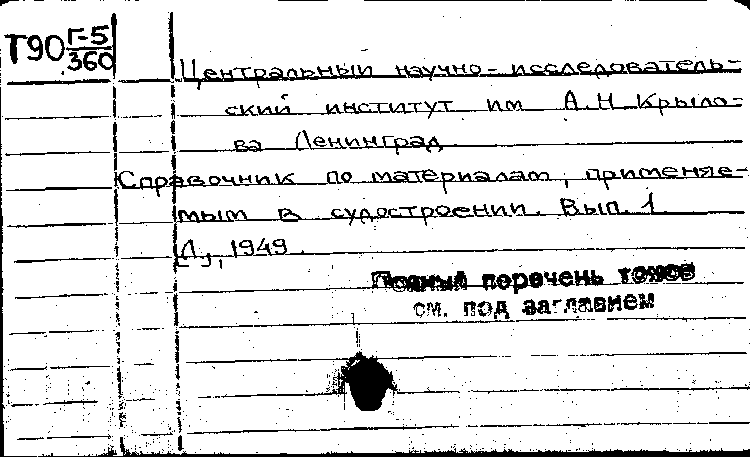 Т90 Г-5/360
Центральный научно-исследователь-
ский институт им А.Н.Крыло-
ва Ленинград
Справочник по материалам, применяе-
мым в судостроении. Вып. 1
Л., 1949.
Полный перечень томов
см. под заглавием